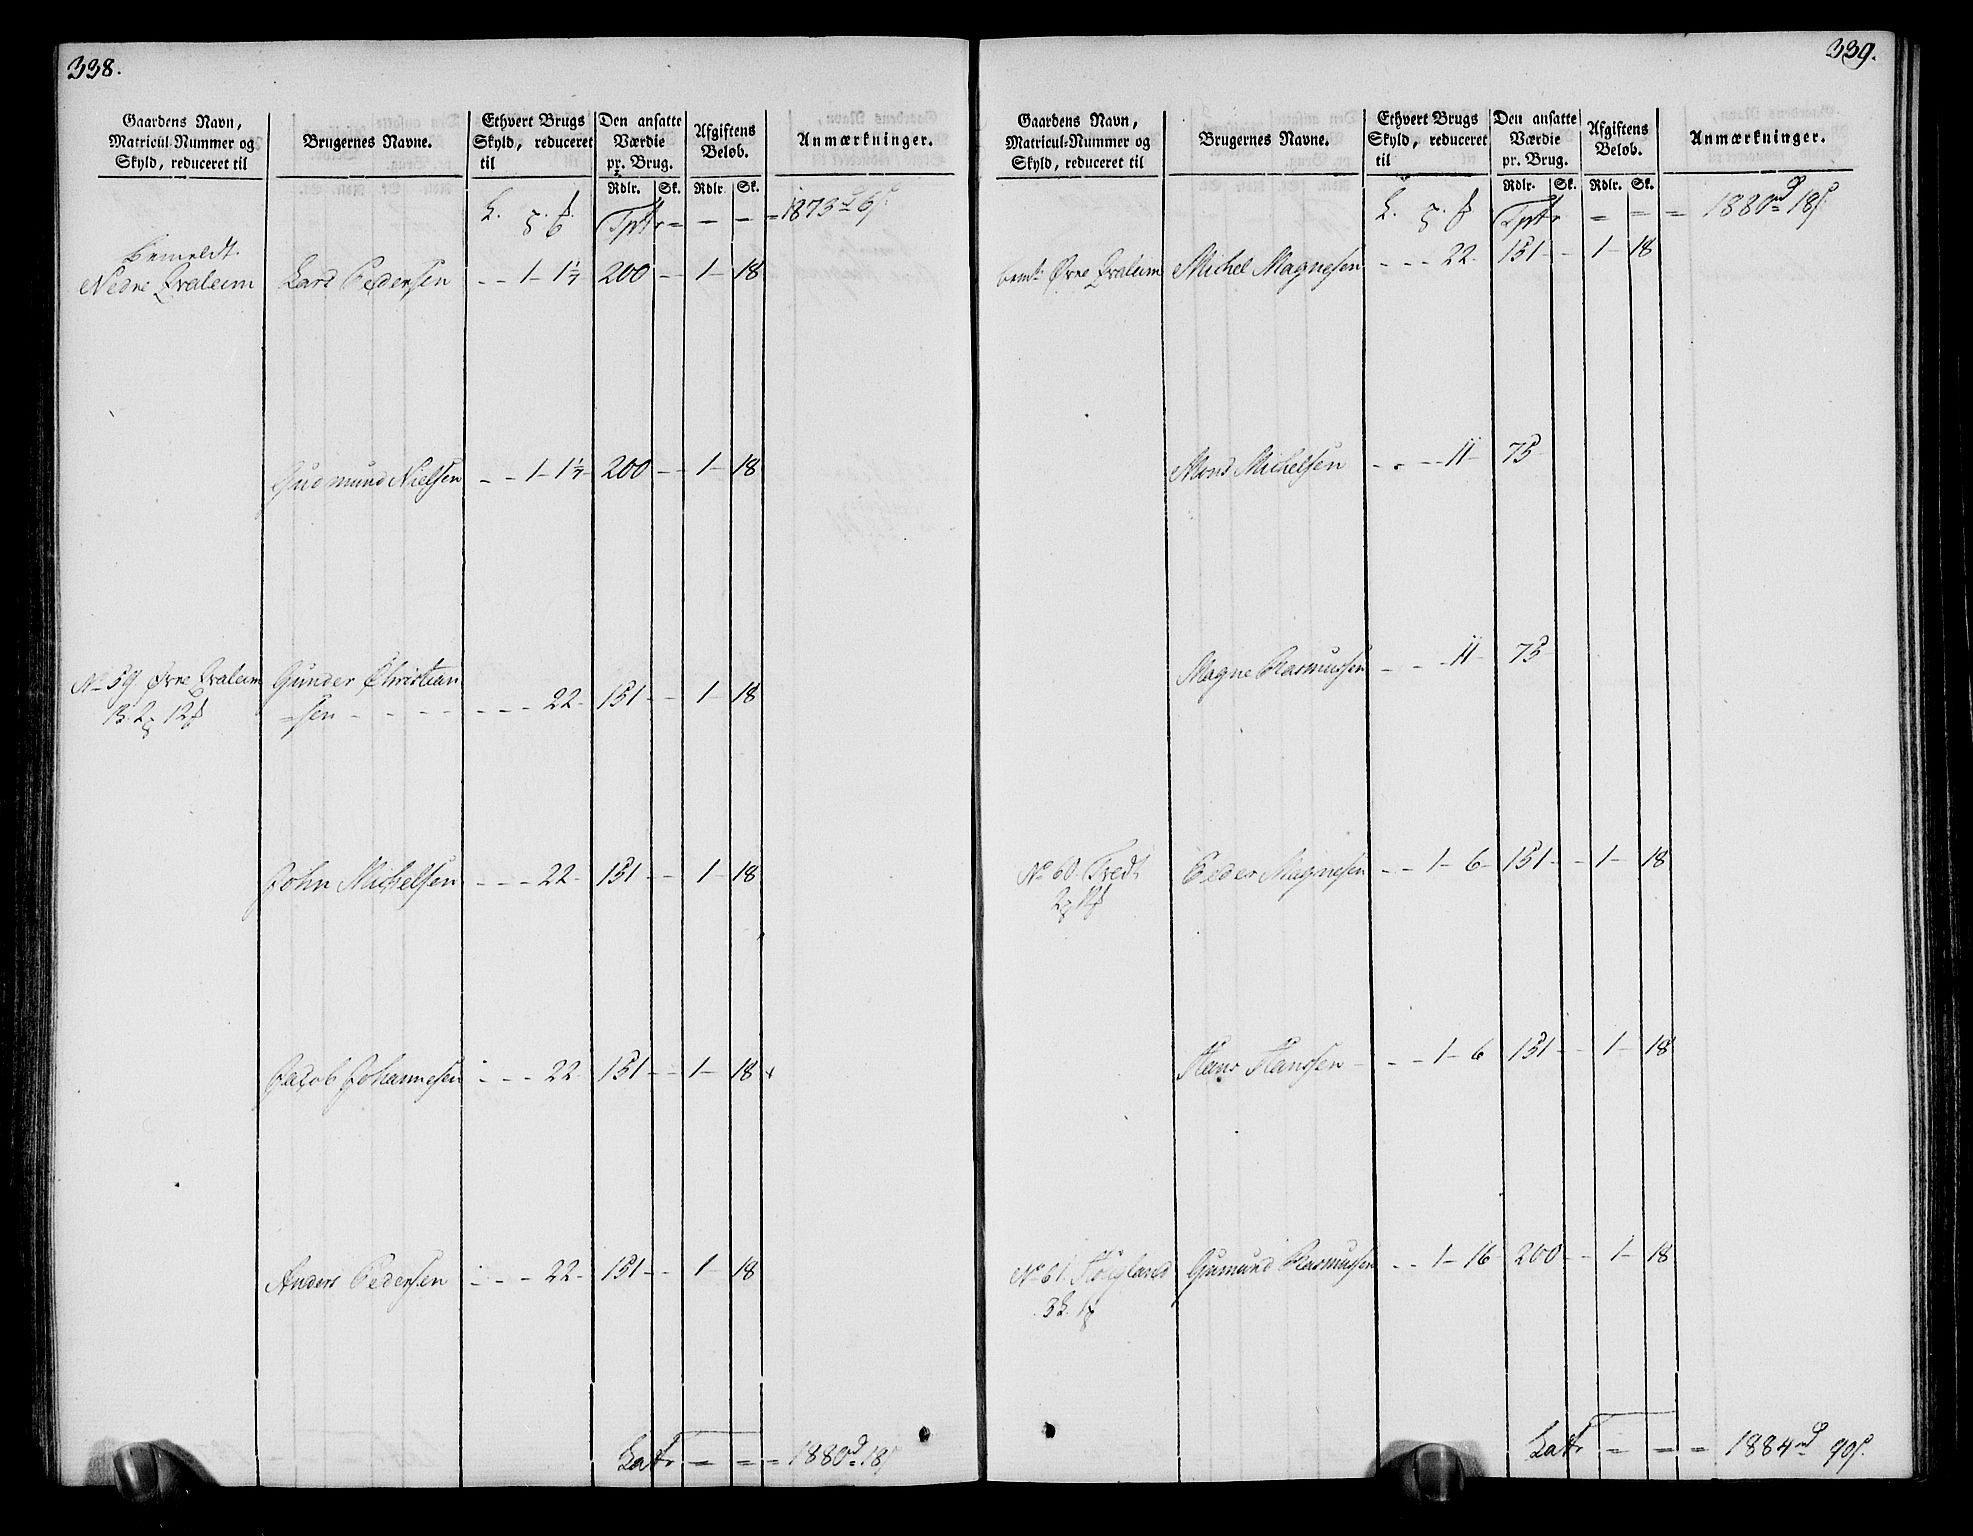 338.
Gaardens Navn, Matricul-Nummer og Skyld, reduceret til
Brugernes Navne.
Ethvert Brugs Skyld, reduceret til
Den ansatte Værdie pr. Brug.
Afgiftens Beløb.
Anmærkninger.
Rdlr. Sk. Rdlr. Sk.
Tptr = = = = 1873 6
bemeldt.
Nedre Qvaleim Lars Pedersen - - 1 - 1 1/7 200 - - 1 - 18
Gudmund Nielsen - - 1 - 1 1/7 200 - - 1 - 18
No 59 Øvre Qvaleim Gunder Christian
=sen - - - - - - - 22 - 151 - - 1 - 18
John Michelsen - - - 22 - 151 - - 1 - 18
Jacob Johannesen - - - 22 - 151 - - 1 - 18
Anders Pedersen - - - 22 - 151 - - 1 - 18
Latr = = = 1880 18
339.
Gaardens Navn, Matricul-Nummer og Skyld, reduceret til
Brugernes Navne.
Ethvert Brugs Skyld, reduceret til
Den ansatte Værdie pr. Brug.
Afgiftens Beløb.
Anmærkninger.
Rdlr. Sk. Rdlr. Sk.
Tptr = = = 1880 18
bemt Øvre Qvaleim Michel Magnesen - - - 22 - 151 - - 1 - 18
Mons Michelsen - - - 11 - 75
Magne Rasmussen - - - 11 - 75
No 60 Tredt Peder Magnesen - - 1 - 6 - 151 - - 1 - 18
Hans Hanssen - - - 1 - 6 151 - - 1 - 18
No 61 Hougland Gumund Rasmussen - - 1 - 16 200 - - 1 - 18
Latr = = = 1884 90